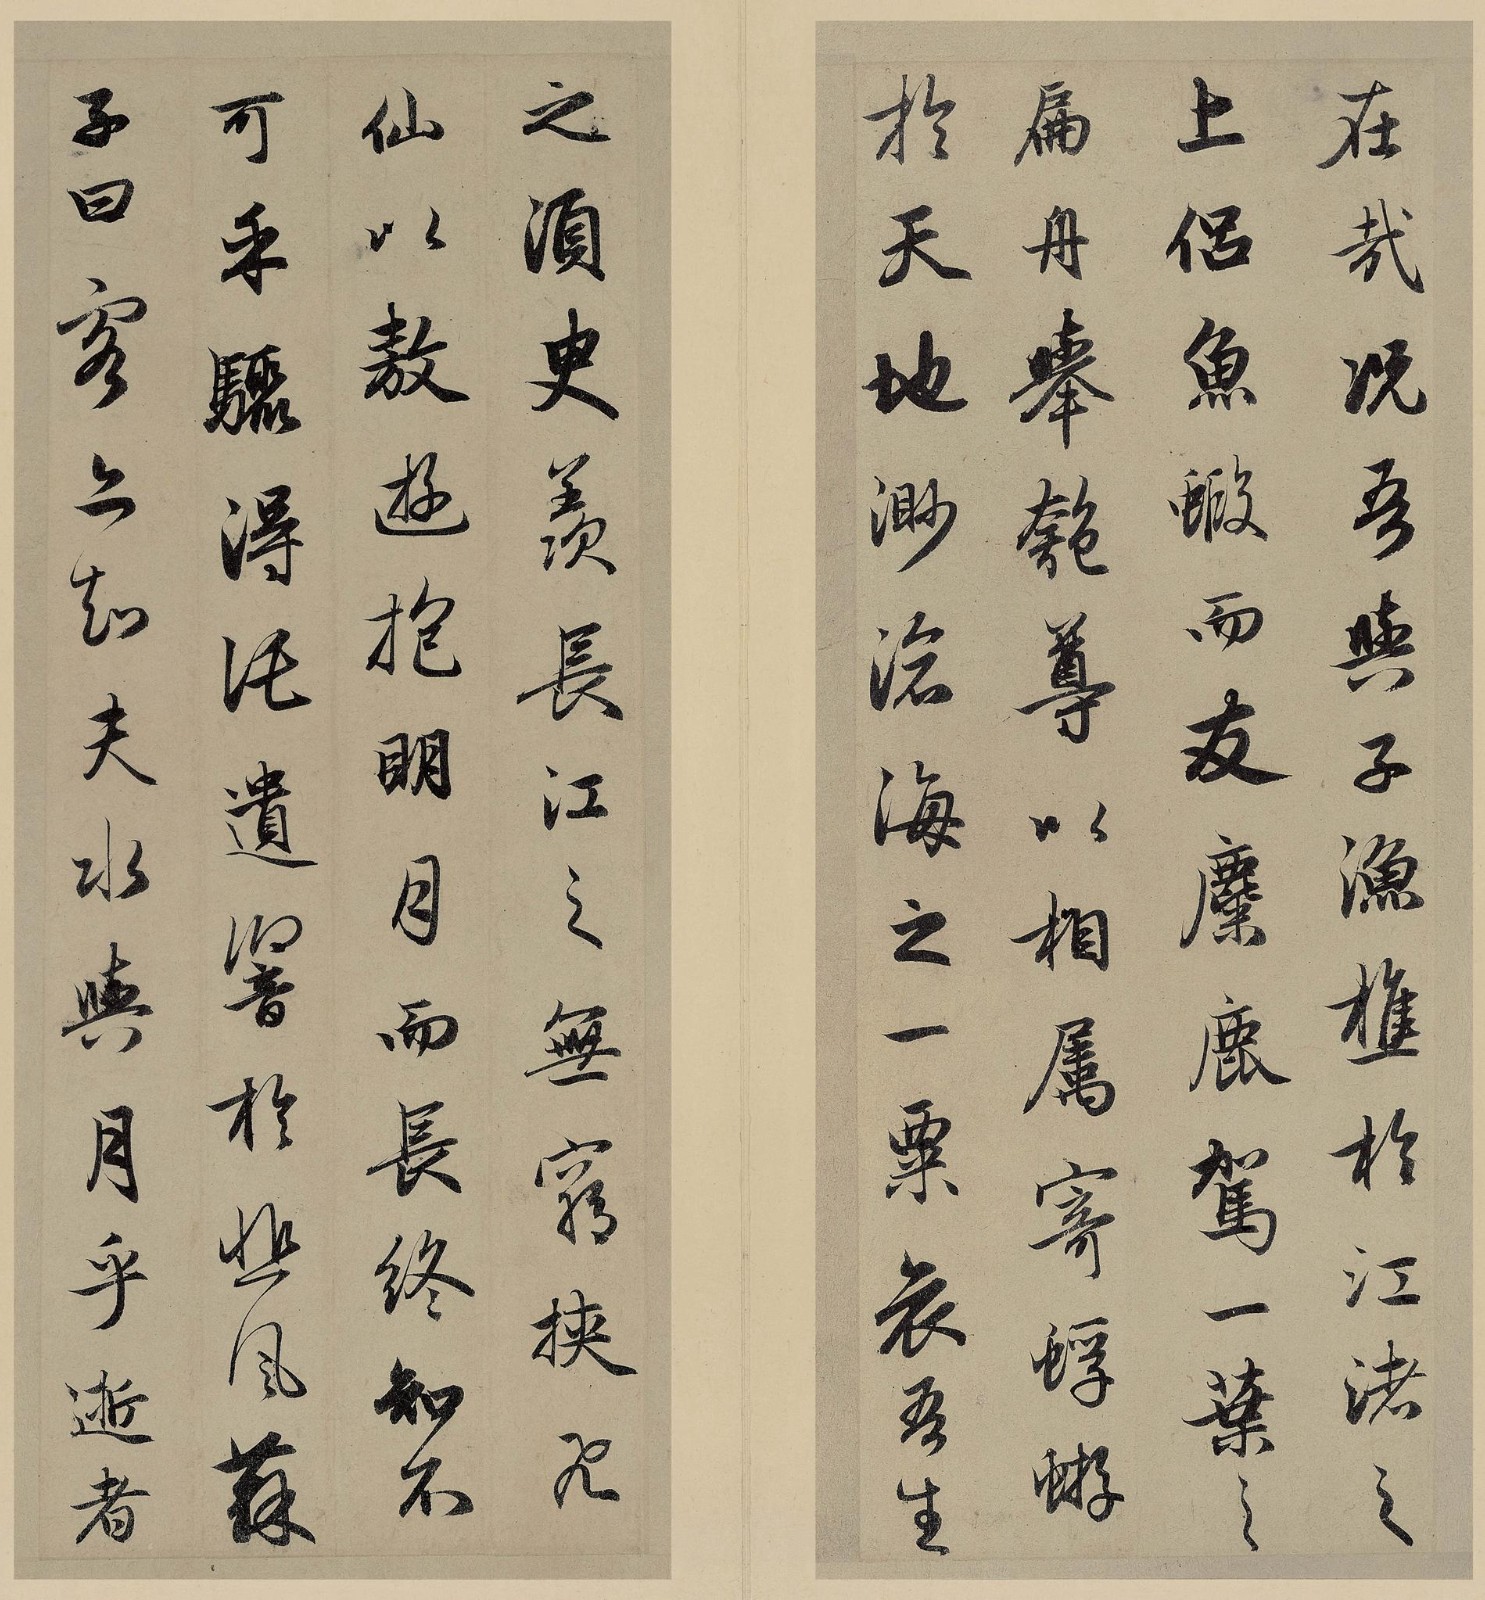 在哉况吾與子漁樵於江渚之
上侣魚蝦而友麋鹿駕一葉之
扁舟舉匏尊以相屬寄蜉蝣
於天地渺滄海之一粟哀吾生
之須臾羨長江之無窮挾飛
仙以敖遊抱明月而長終知不
可乎驟得託遺響於悲風蘇
子曰客亦知夫水與月乎逝者